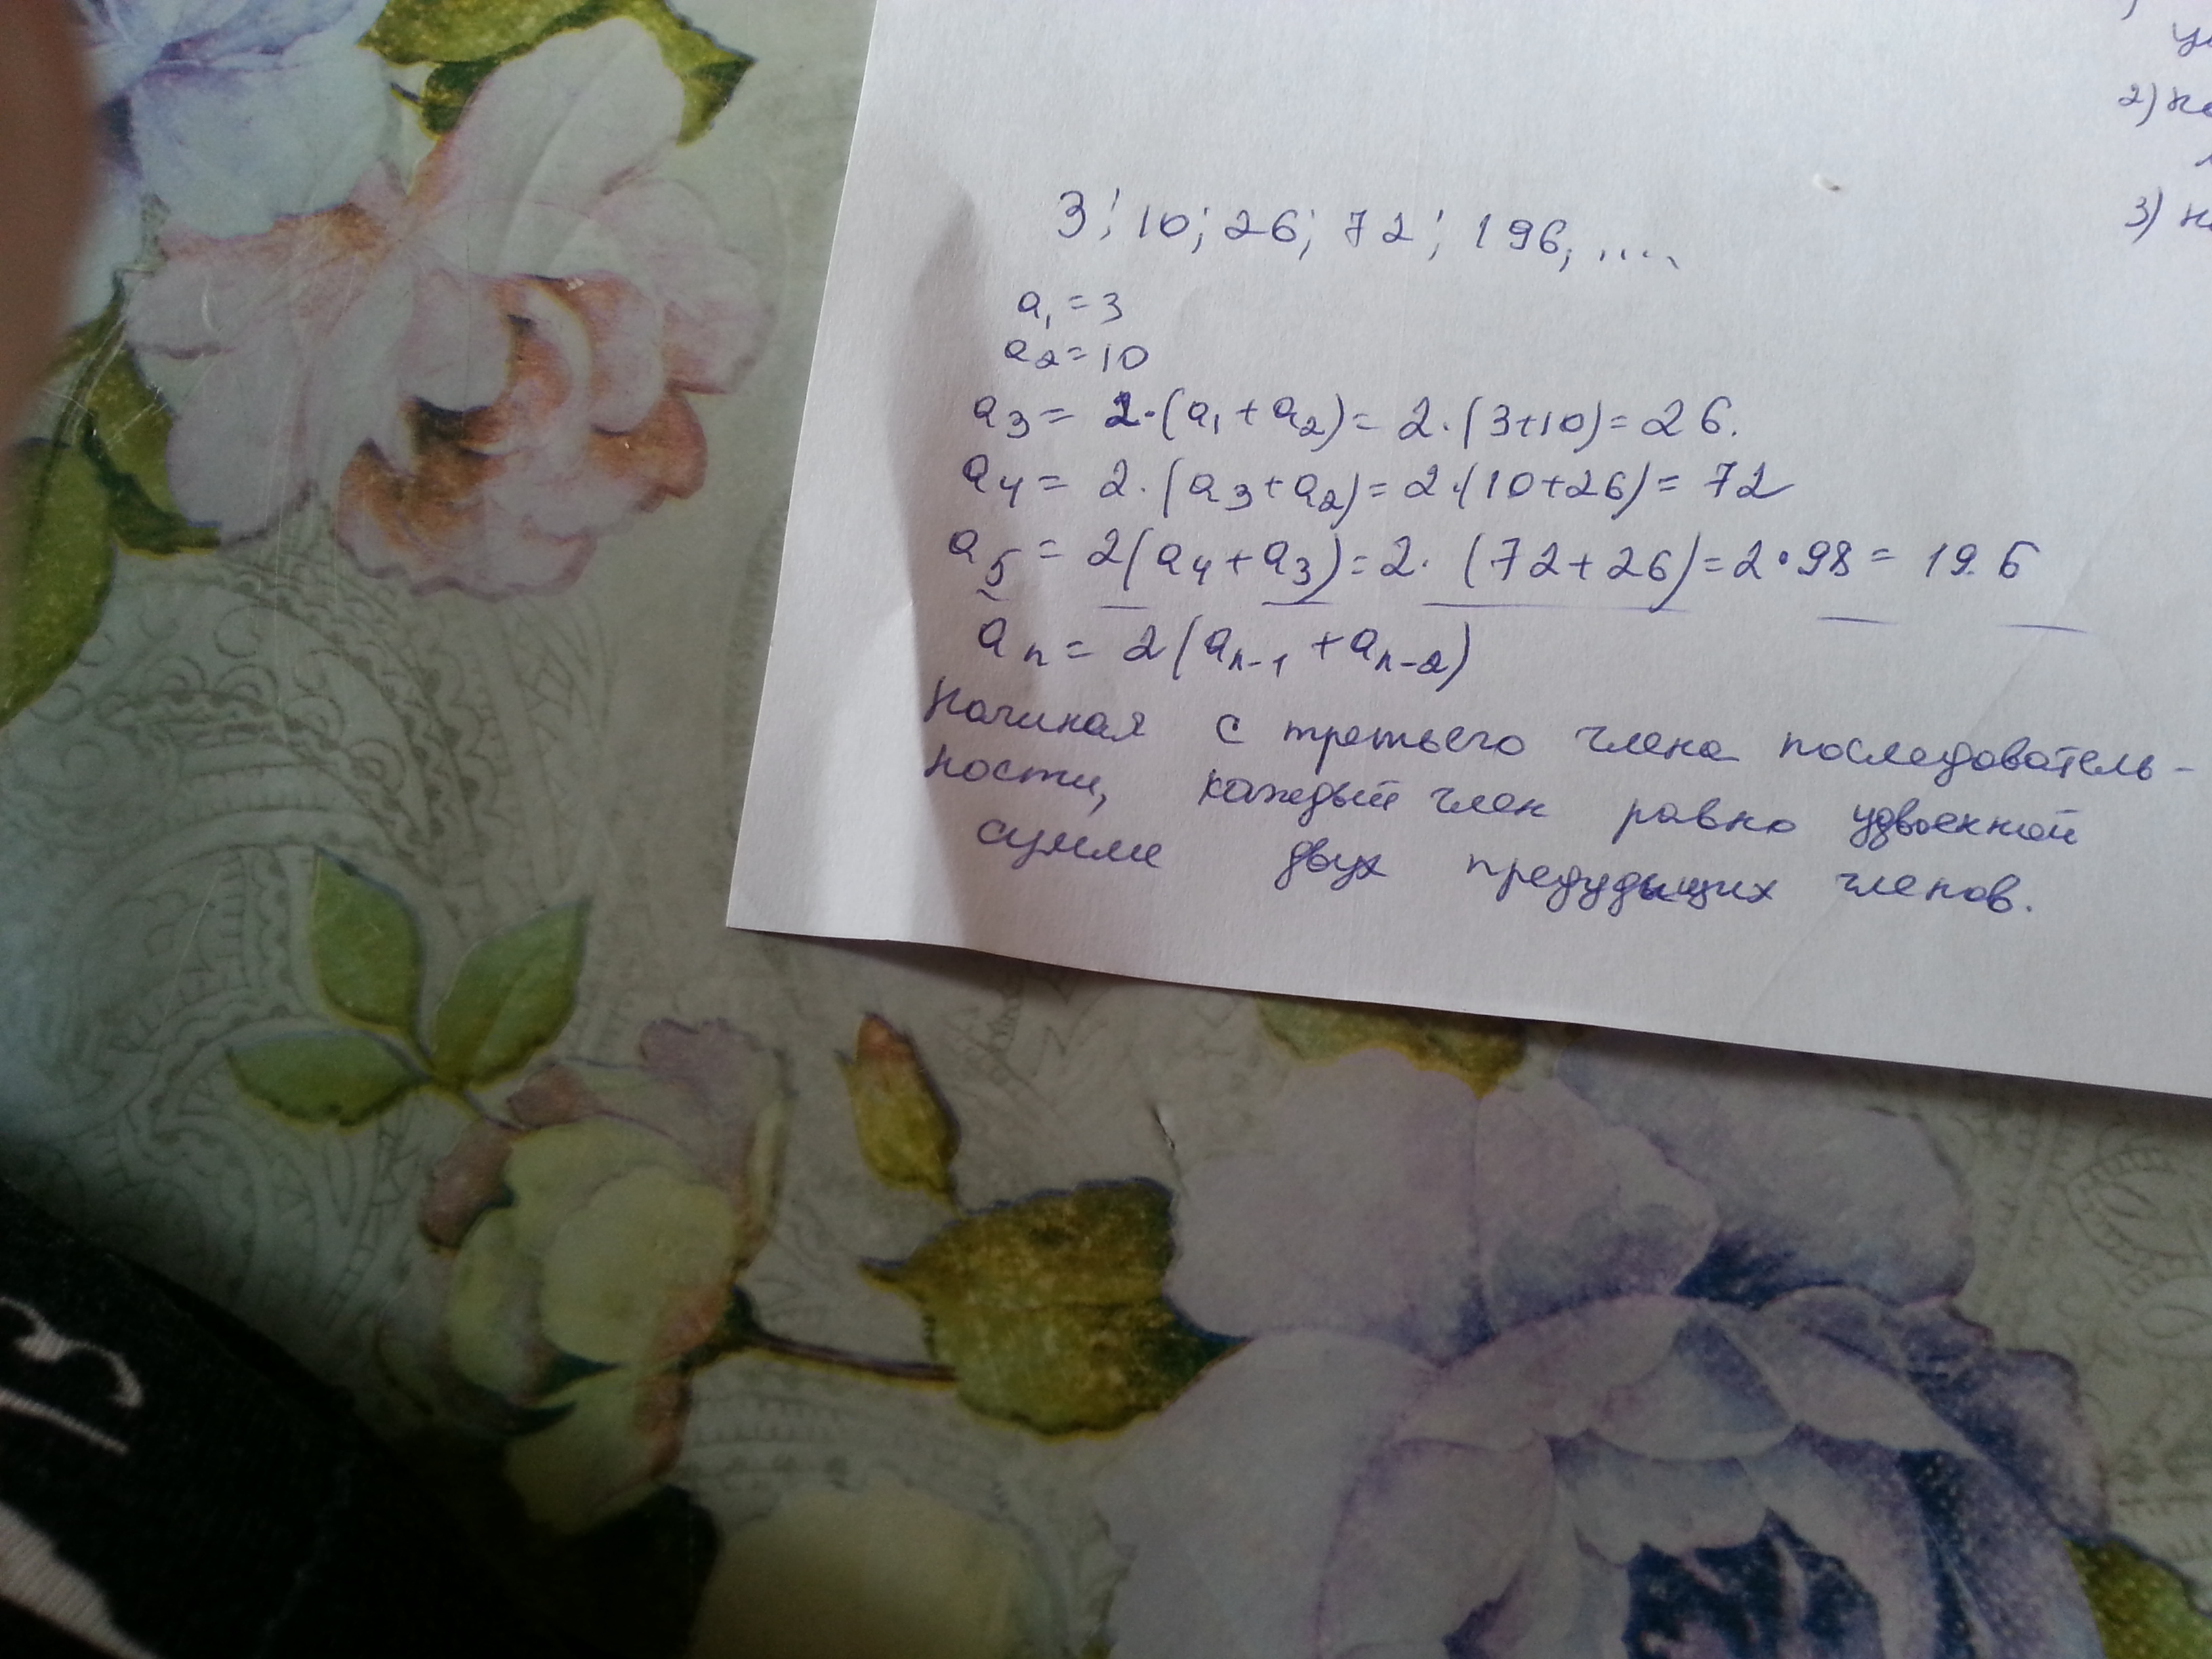 3; 10; 26; 72; 196; ....
a₁ = 3
a₂ = 10
a₃ = 2·(a₁ + a₂) = 2·(3+10) = 26.
a₄ = 2·(a₃ + a₂) = 2·(10+26) = 72
a₅ = 2(a₄ + a₃) = 2·(72+26) = 2•98 = 196
aₙ = 2(aₙ₋₁ + aₙ₋₂)
Начиная с третьего члена последователь-
ности, каждый член равно удвоенной
сумме двух предудыщих членов.
2)
3)